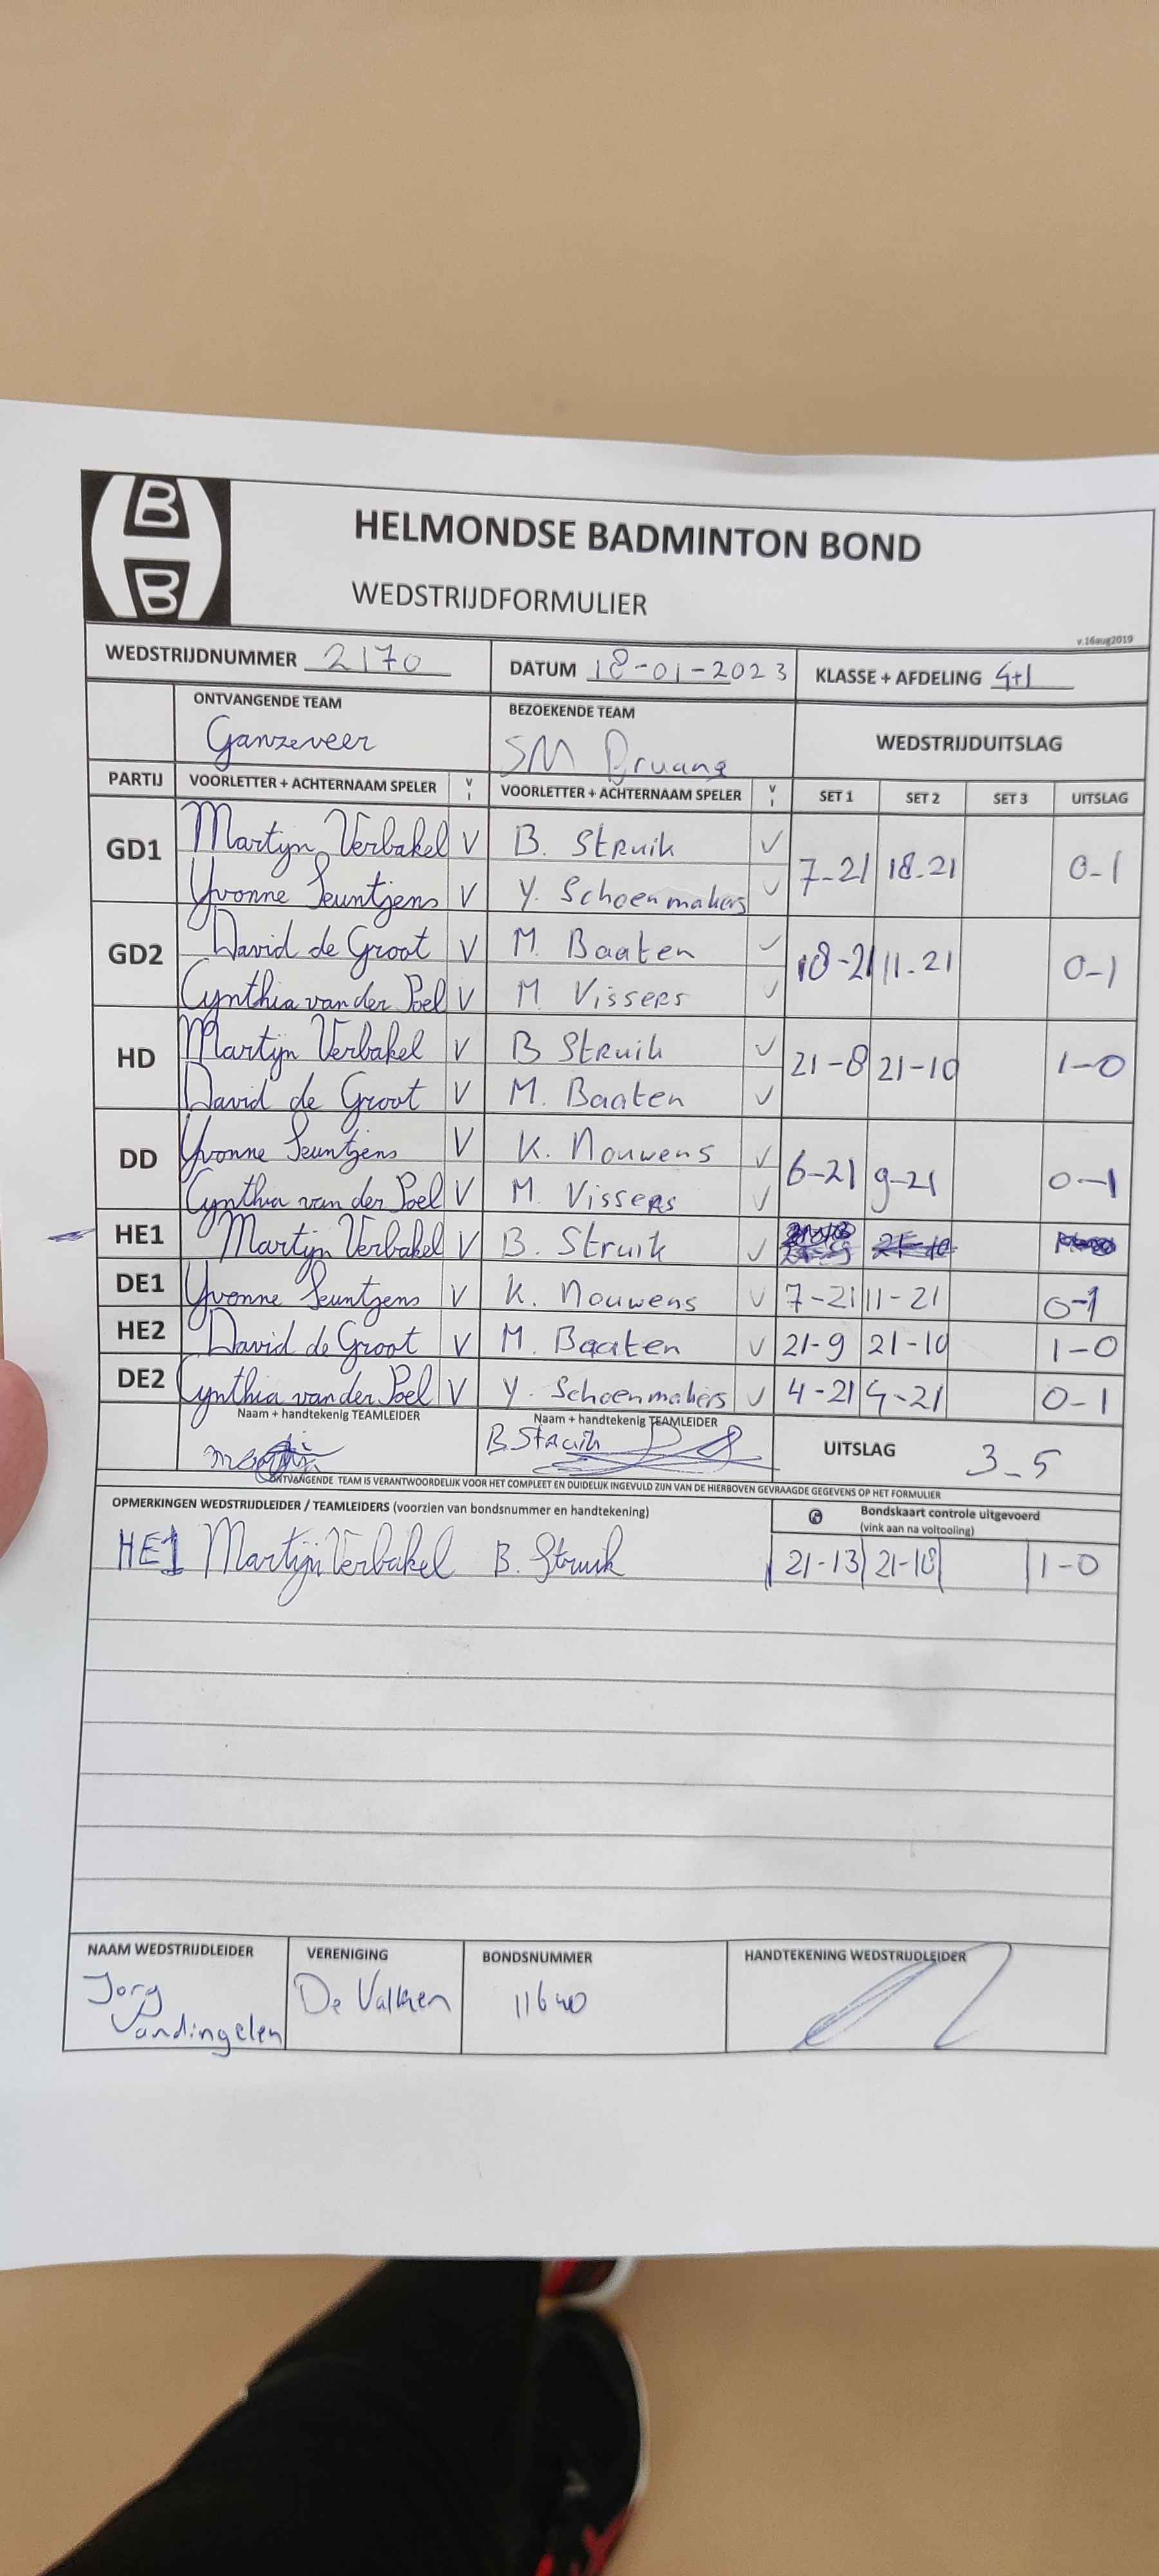 HELMONDSE BADMINTON BOND
WEDSTRIJDFORMULIER
v.16aug2019
WEDSTRIJDNUMMER 2170 DATUM 18-01-2023 KLASSE + AFDELING 4+1
ONTVANGENDE TEAM BEZOEKENDE TEAM WEDSTRIJDUITSLAG
Ganzeveer SM Druang
PARTIJ VOORLETTER + ACHTERNAAM SPELER V I VOORLETTER + ACHTERNAAM SPELER V I SET 1 SET 2 SET 3 UITSLAG
GD1 Martijn Verbakel V B. Struik V 7-21 18-21 0-1
Yvonne Seuntjens V Y. Schoenmakers V
GD2 David de Groot V M. Baaten V 18-21 11-21 0-1
Cynthia van der Poel V M. Vissers V
HD Martijn Verbakel V B Struik V 21-8 21-10 1-0
David de Groot V M. Baaten V
DD Yvonne Seuntjens V K. Nouwens V 6-21 9-21 0-1
Cynthia van der Poel V M. Vissers V
HE1 Martijn Verbakel V B. Struik V
DE1 Yvonne Seuntjens V K. Nouwens V 7-21 11-21 0-1
HE2 David de Groot V M. Baaten V 21-9 21-10 1-0
DE2 Cynthia van der Poel V Y. Schoenmakers V 4-21 4-21 0-1
Naam + handtekenig TEAMLEIDER Naam + handtekenig TEAMLEIDER
B Struik UITSLAG 3-5
ONTVANGENDE TEAM IS VERANTWOORDELIJK VOOR HET COMPLEET EN DUIDELIJK INGEVULD ZIJN VAN DE HIERBOVEN GEVRAAGDE GEGEVENS OP HET FORMULIER
OPMERKINGEN WEDSTRIJDLEIDER / TEAMLEIDERS (voorzien van bondsnummer en handtekening) Bondskaart controle uitgevoerd
(vink aan na voltooling)
HE1 Martijn Verbakel B. Struik 21-13 21-18 1-0
NAAM WEDSTRIJDLEIDER VERENIGING BONDSNUMMER HANDTEKENING WEDSTRIJDLEIDER
Jorg De Valken 11640
Vandingelen